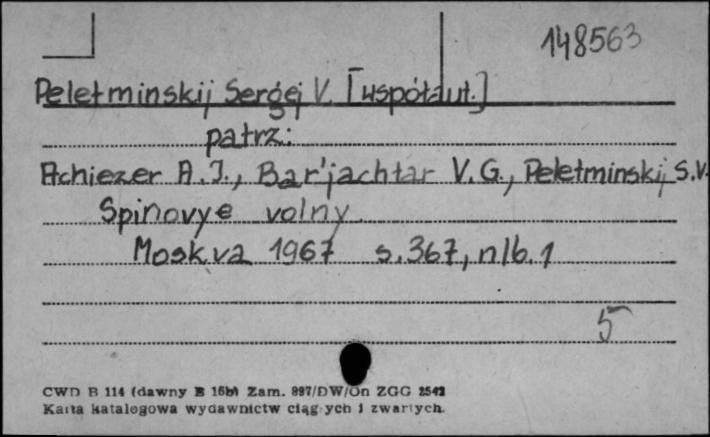 148563
Peletminskij Sergej V. [współaut.]
patrz:
Achiezer A.I., Bar'jachtar V.G., Peletminskij S.V.
Spinovye volny.
Moskva 1967 s.367, nlb.1
5
CWD B 114 (dawny B 15b) Zam. 897/DW/On ZGG 2542
Karta katalogowa wydawnictw ciągłych i zwartych.